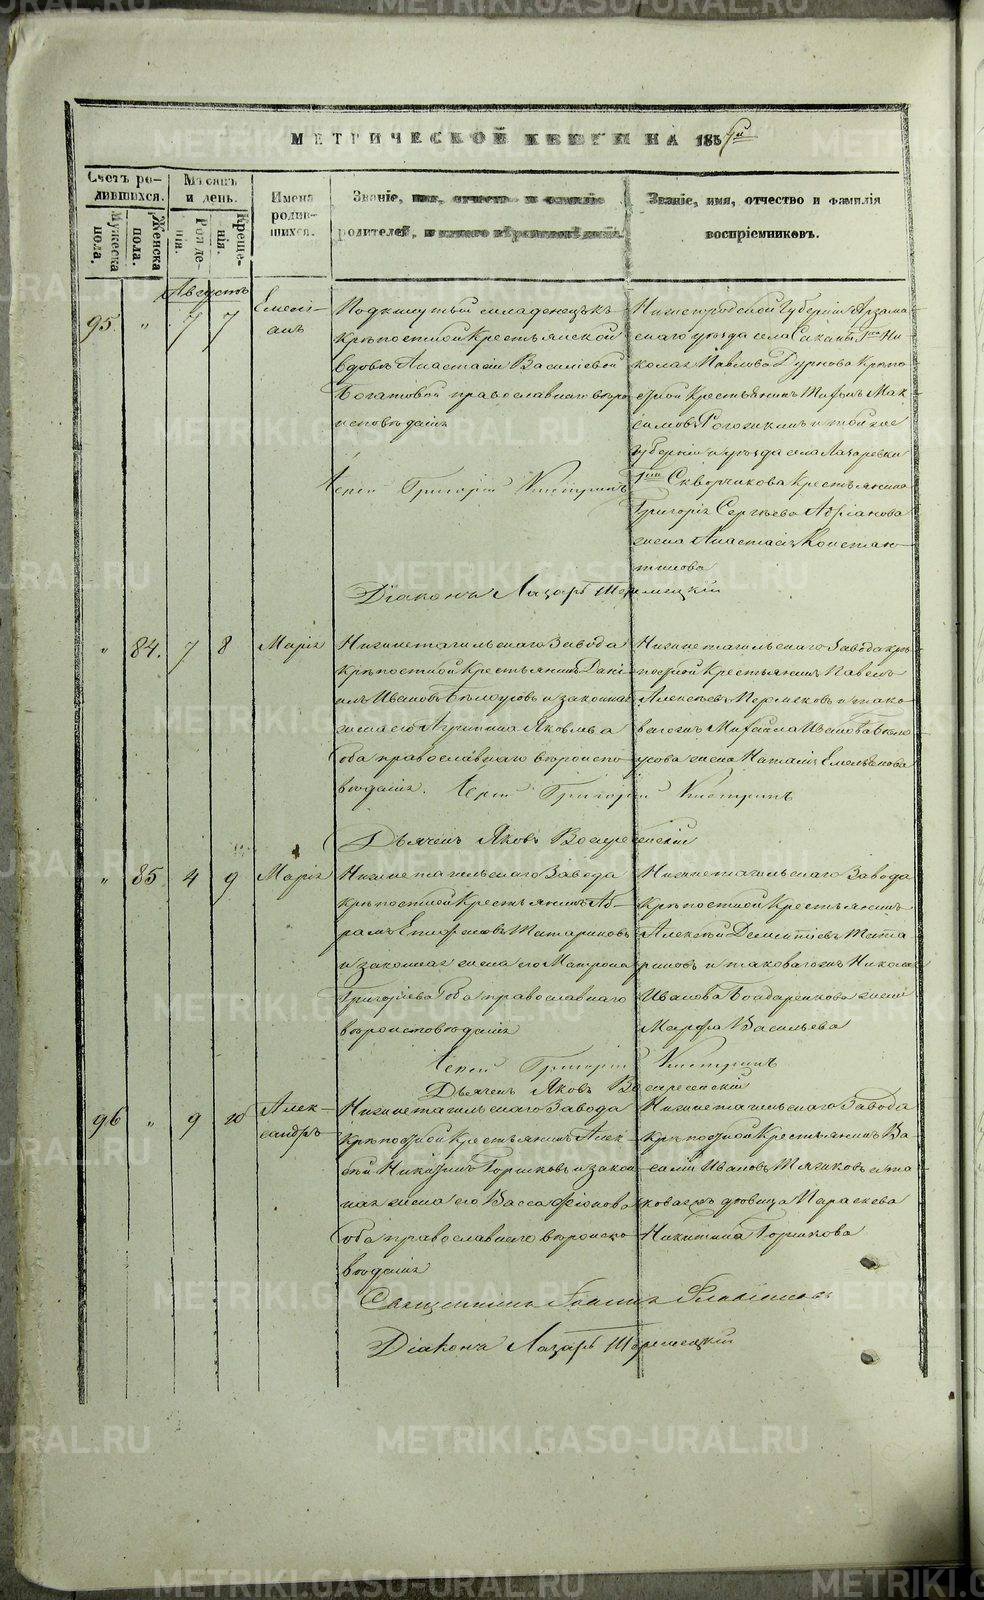 МЕТРИЧЕСКОЙ КНИГИ НА 185
Счетъ ро-
дившихся.
Мужеска
пола.
Женска
пола.
Мѣсяцъ
и день.
Рожде-
нія.
Креще-
нія.
Имена
родив-
шихся.
Званіе, имя, отчество и фамилія
родителей, и какого вѣроисповѣданія.
Званіе, имя, отчество и фамилія
воспріемниковъ.
Августъ
95 " 7 7
Емелі-
анъ
Подкинутый младенецъ къ
крѣпостной Крестьянской
вдовѣ Анастасіи Василіевой
Богатовой православнаго вѣро
исповѣданія
Нижегородской Губерніи Арзама-
скаго уѣзда села Гна Ни-
колая Павлова Дурнова Крѣпо-
стной Крестьянинъ Мак-
симовъ Рогожкинъ и той же
Губерніи и уѣзда села Лазаревки
Гна Скворчикова Крестьянина
Григорія Сергѣева
жена Анастасія Констан-
тинова
Іерей Григорій
Діаконъ Лазарь
" 84. 7 8
Марія
Нижнетагильскаго Завода
крѣпостной Крестьянинъ Дані-
илъ Ивановъ Бѣлоусовъ и законная
жена его Агрипина Яковлева
оба православнаго вѣроиспо
вѣданія.
Нижнетагильскаго Завода крѣ-
постной Крестьянинъ Павелъ
Алексѣевъ Пермяковъ и тако-
ваго жъ Михаила Иванова Бѣло
усова жена Наталія Емельянова
Іерей Григорій
Дьячекъ Яковъ Воскресенскій
" 85 4 9
Марія
Нижнетагильскаго Завода
крѣпостной Крестьянинъ Аб-
рамъ Епифановъ Татариновъ
и законная жена его Матрона
Григоріева оба православнаго
вѣроисповѣданія
Нижнетагильскаго Завода
крѣпостной Крестьянинъ
Алексѣй Дементіевъ Тата
риновъ и таковаго жъ Николая
Иванова Бондаренкова жена
Марфа Васильева
Іерей Григорій
Дьячекъ Яковъ Воскресенскій
96 " 9 10
Алек-
сандръ
Нижнетагильскаго Завода
крѣпостной Крестьянинъ Алек-
сѣй Никитинъ Горшковъ и закон
ная жена его Васса
оба православнаго вѣроиспо
вѣданія
Нижнетагильскаго Завода
крѣпостной Крестьянинъ Ва-
силій Ивановъ и та
коваго жъ дѣвица Параскева
Никитина Горшкова
Священникъ Іоаннъ
Діаконъ Лазарь
METRIKI.GASO-URAL.RU